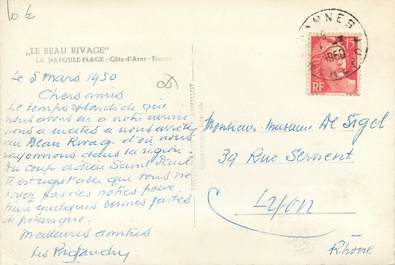 "LE BEAU RIVAGE"
LA NAPOULE-PLAGE - Côte d'Azur - France
Le 5 mars 1950
Chers amis
Le temps splendide que
nous avons eu à notre arrivée
nous a incités à nous arrêter
au Beau Rivage d'où nous
rayonnons dans la région.
Du coup adieu Saint Paul
Il est regrettable que vous ne
soyez pas des nôtres pour
faire quelques bonnes parties
de pétanque.
Meilleures amitiés
Les
CANNES
1950
15F
RF
Monsieur-Madame De Sigel
39 Rue Servent
Lyon
Rhône